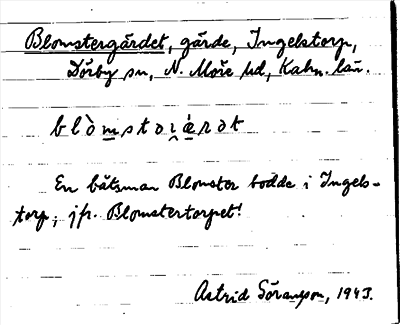 Blomstergärdet, gärde, Ingelstorp,
Dörby sn, N. Möre hd, Kalm. län.
blòmstəɹæ̀rət
En båtsman Blomster bodde i Ingels-
torp, jfr. Blomstertorpet!
Astrid Göransson, 1943.